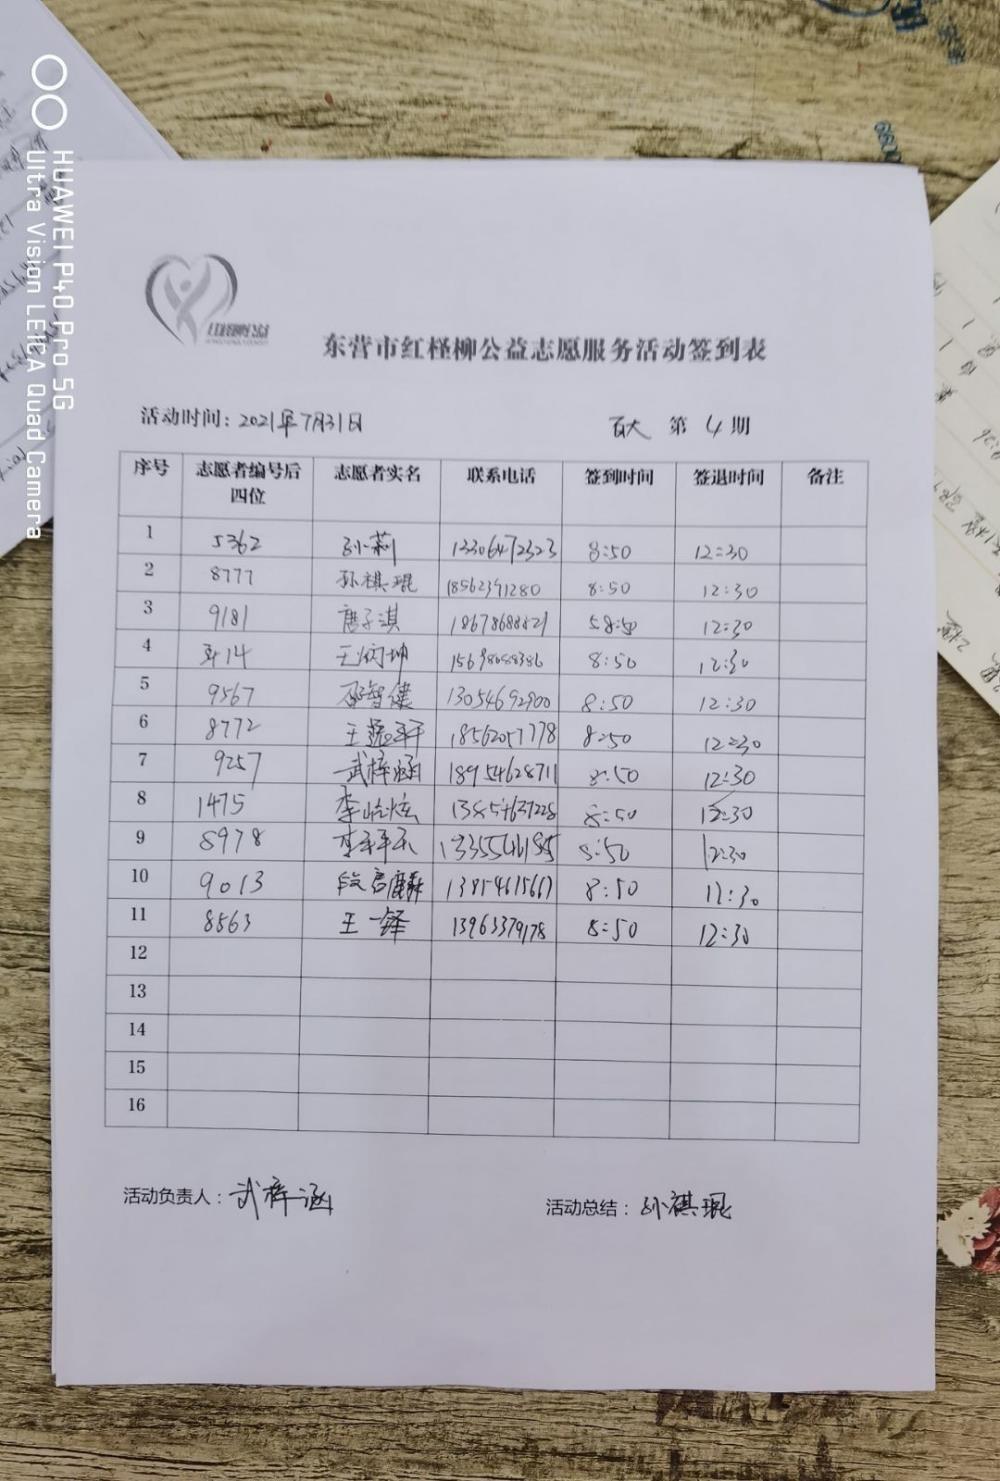 HUAWEI P40 Pro 5G
Ultra Vision LEICA Quad Camera
东营市红柽柳公益志愿服务活动签到表
活动时间：2021年7月31日 百大 第 4 期
序号 志愿者编号后四位 志愿者实名 联系电话 签到时间 签退时间 备注
1 5362 孙莉 13306472323 8:50 12:30
2 8777 孙祺琨 18562391280 8:50 12:30
3 9181 唐子淇 18678688821 12:30
4 14 王炳坤 8:50 12:30
5 9567 邵智健 13054692900 8:50 12:30
6 8772 王 18562057778 8:50 12:30
7 9257 武梓涵 18954628711 8:50 12:30
8 1475 李 炫 13854637228 8:50 12:30
9 8978 李 8:50 12:30
10 9013 段 13854615667 8:50 12:30
11 8563 王一铎 13963379178 8:50 12:30
12
13
14
15
16
活动负责人：武梓涵 活动总结：孙祺琨